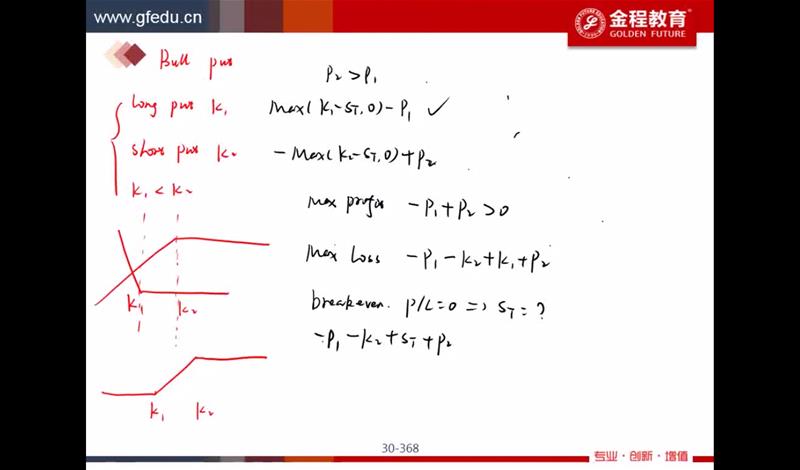 www.gfedu.cn
金程教育
GOLDEN FUTURE
Bull put
P₂ > P₁
long put K₁ Max(K₁-S_T,0)-P₁ ✓
short put K₂ -Max(K₂-S_T,0)+P₂
K₁ < K₂
Max profit -P₁+P₂>0
Max Loss -P₁-K₂+K₁+P₂
breakeven. P/L=0 => S_T=?
-P₁-K₂+S_T+P₂
K₁ K₂
K₁ K₂
30-368
专业·创新·增值